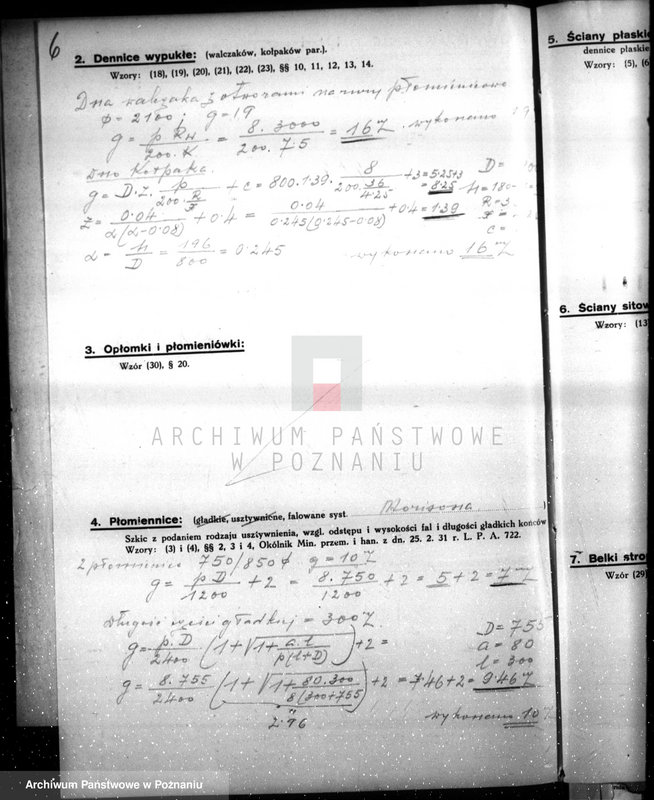 6
2. Dennice wypukłe: (walczaków, kołpaków par.).
Wzory: (18), (19), (20), (21), (22), (23), §§ 10, 11, 12, 13, 14.
Dna walczaka z otworami na rury płomienicowe
φ = 2100; g = 19
g = p RH / 200.K = 8.3000 / 200.7.5 = 16 wykonano 19
Dno Kołpaka
g = D.Z. p / 200. + c = 800.1.39. 8 / 200. 36 / 4.25 + 3 = 5.25+3 = 8.25
Z = 0.04 / α(α-0.08) + 0.4 = 0.04 / 0.245(0.245-0.08) + 0.4 = 1.39
D =
h = 180
R = 3
c =
α = h / D = 196 / 800 = 0.245 wykonano 16
3. Opłomki i płomieniówki:
Wzór (30), § 20.
ARCHIWUM PAŃSTWOWE
W POZNANIU
4. Płomiennice: (gładkie, usztywnione, falowane syst. Morisona)
Szkic z podaniem rodzaju usztywnienia, wzgl. odstępu i wysokości fal i długości gładkich końców
Wzory: (3) i (4), §§ 2, 3 i 4, Okólnik Min. przem. i han. z dn. 25. 2. 31 r. L. P. A. 722.
2 płomienice 750/850 φ g = 10
g = p D / 1200 + 2 = 8.750 / 1200 + 2 = 5 + 2 = 7
Długość części gładkiej = 300
g = p.D / 2400 (1+√1+ a.l / p(l+D)) + 2 =
g = 8.755 / 2400 (1+√1+ 80.300 / 8(300+755)) + 2 = 7.46+2 = 9.46
2.96
D = 755
a = 80
l = 300
wykonano 10
5. Ściany płaskie
dennice płaskie
Wzory: (5), (6
6. Ściany sitow
Wzory: (13
7. Belki strop
Wzór (29)
Archiwum Państwowe w Poznaniu